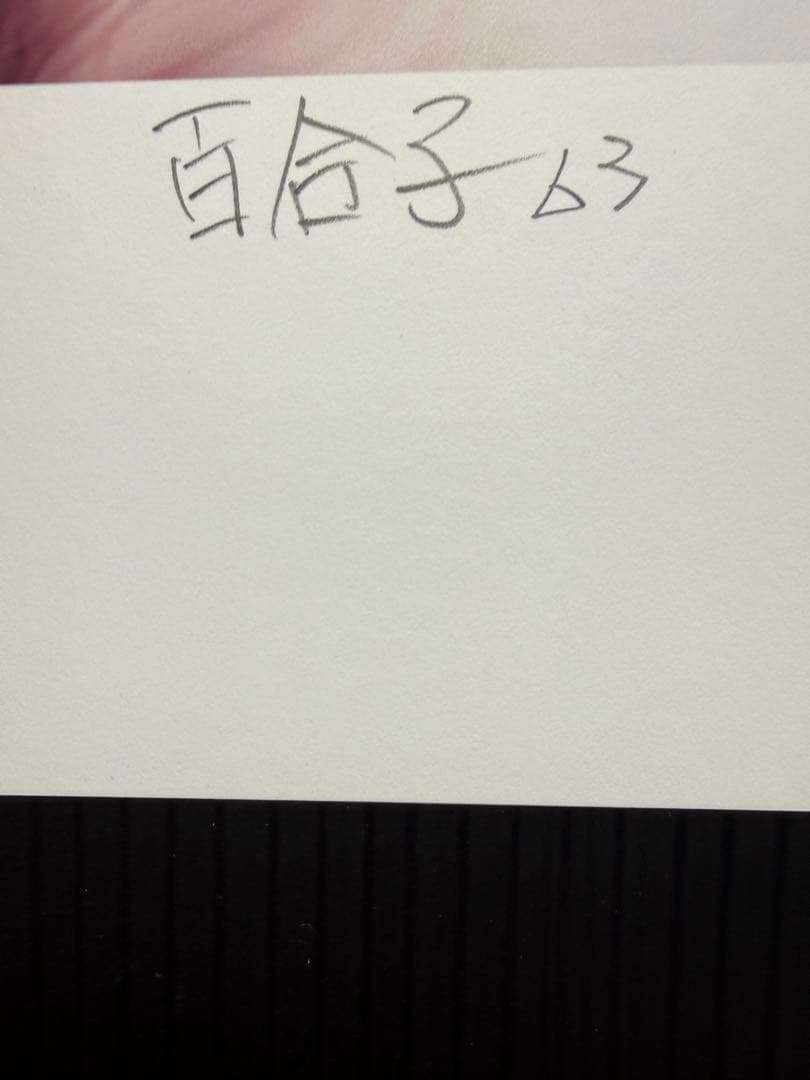 百合子 63